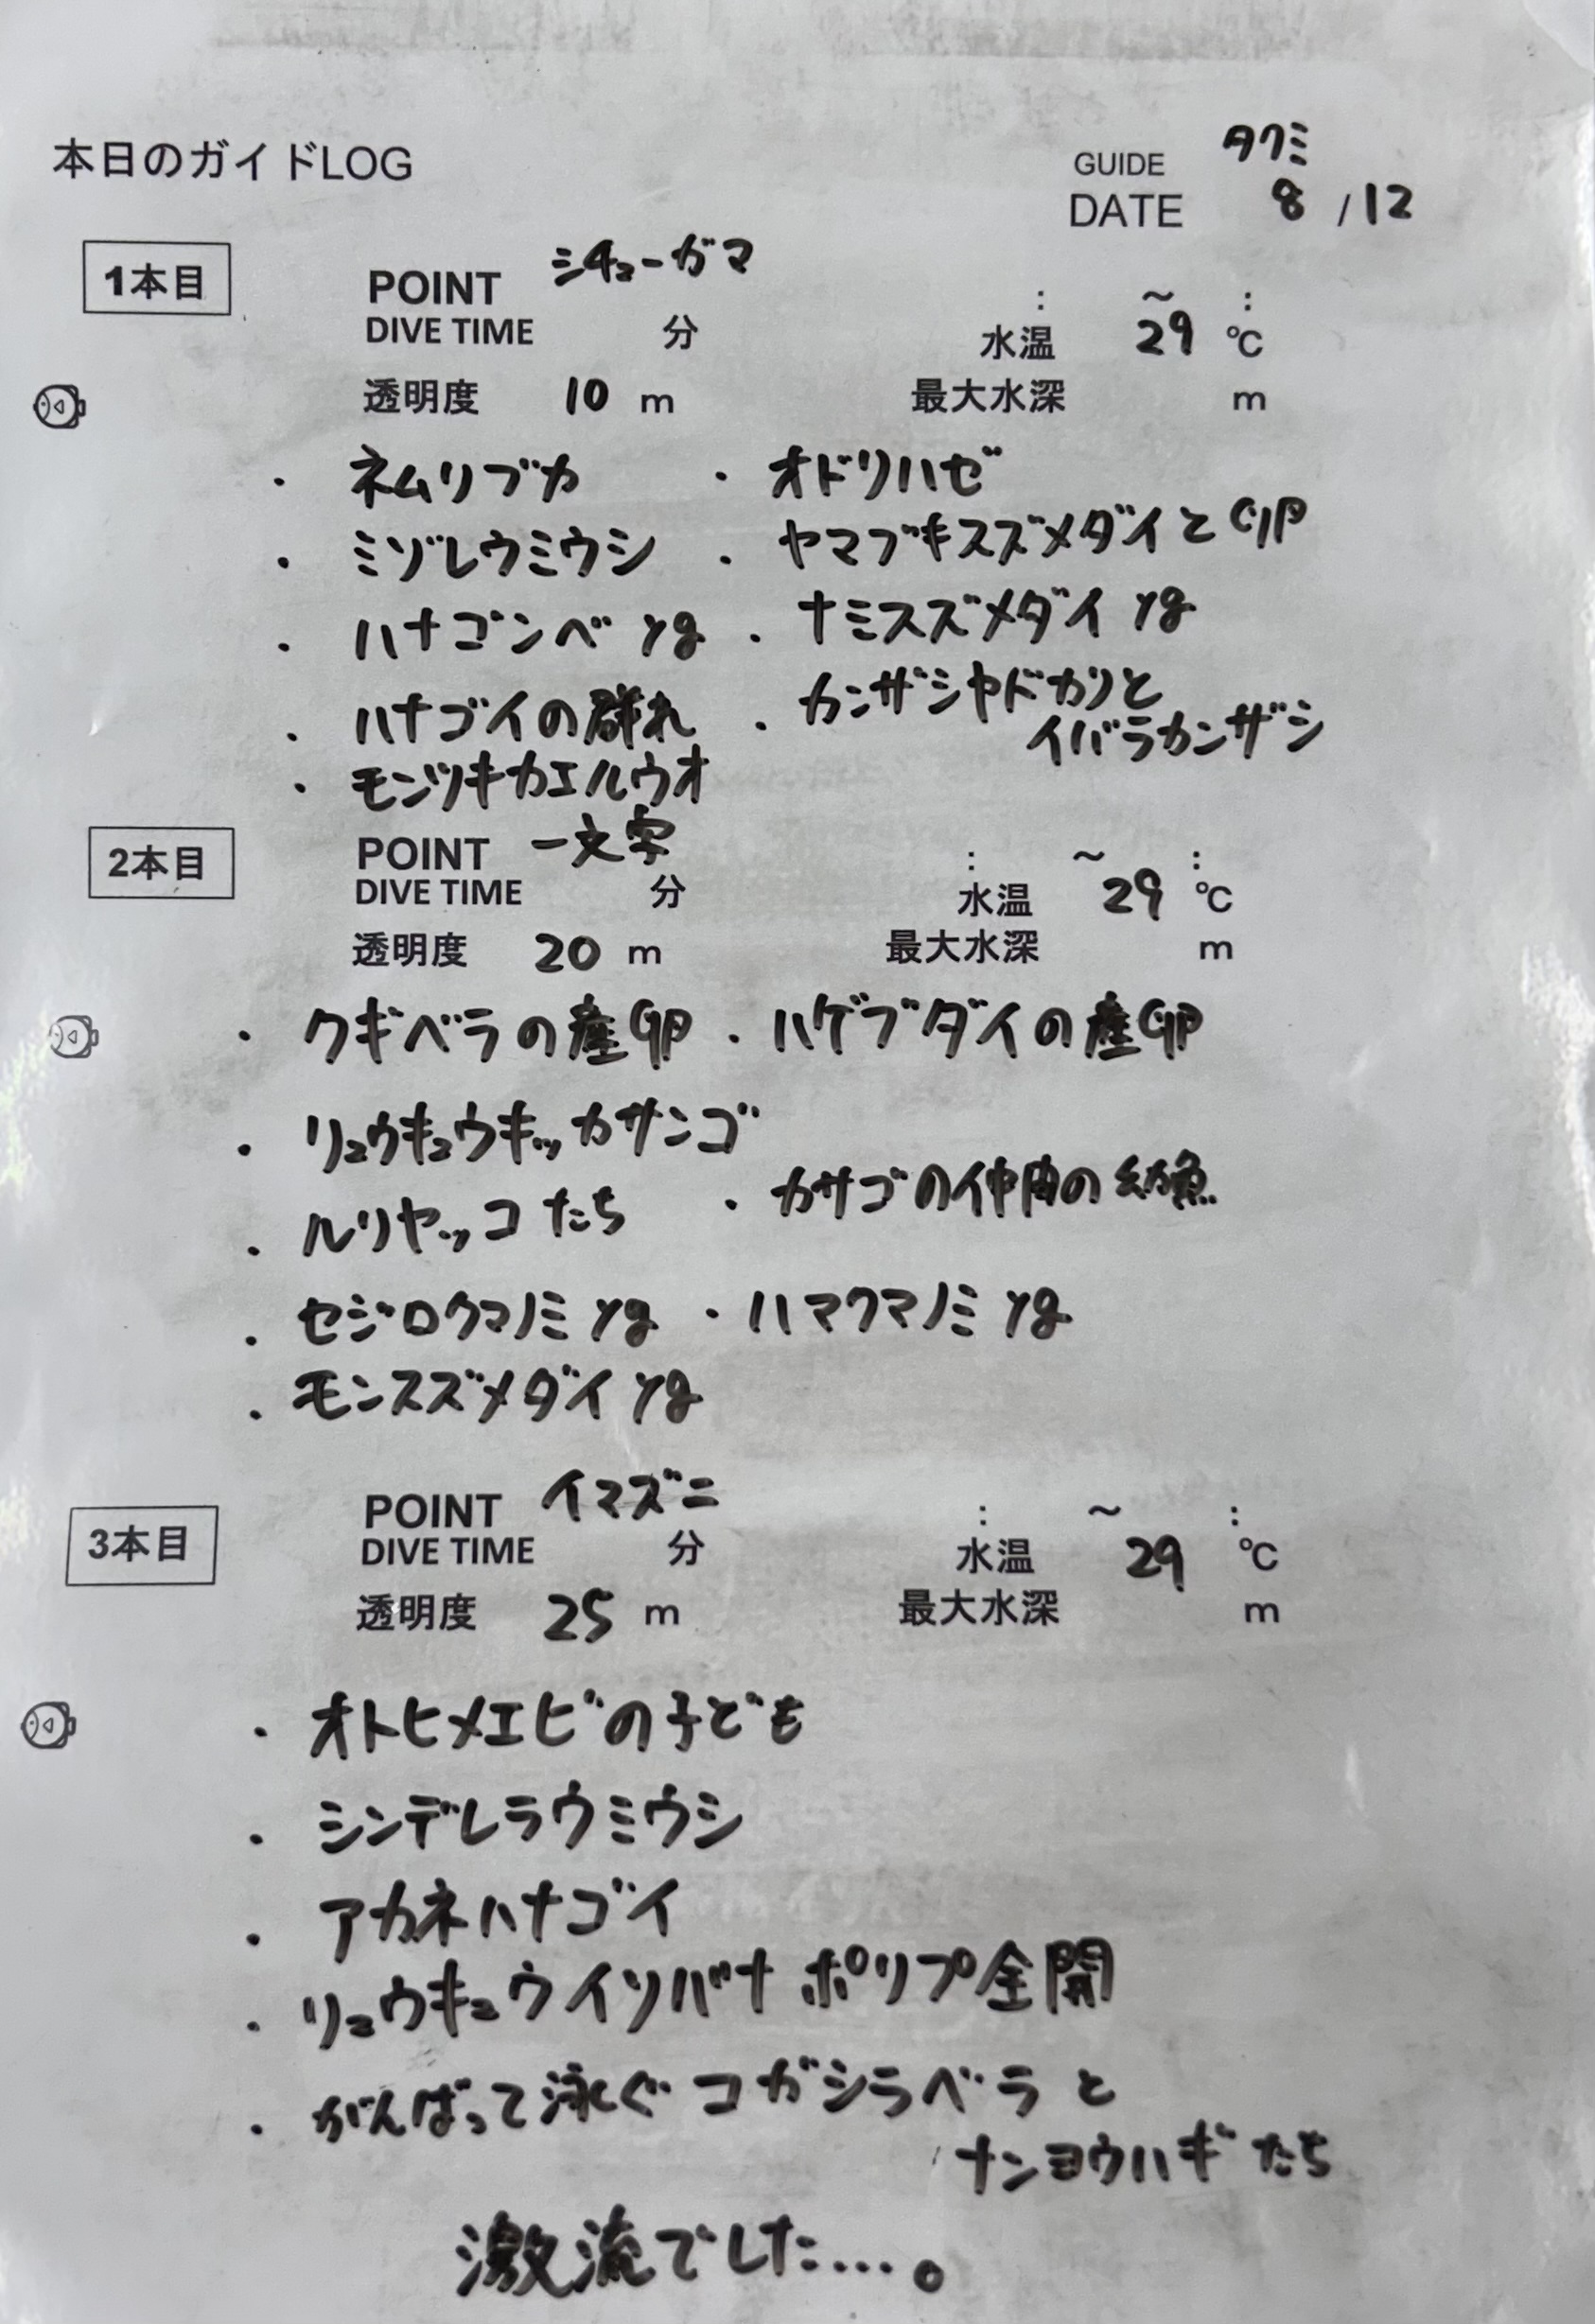 本日のガイドLOG
GUIDE タクミ
DATE 8 /12
1本目
POINT シチューガマ : ～ :
DIVE TIME 分 水温 29 ℃
透明度 10 m 最大水深 m
・ネムリブカ ・オドリハゼ
・ミゾレウミウシ ・ヤマブキスズメダイと卵
・ハナゴンベ yg ・ナミスズメダイ yg
・ハナゴイの群れ ・カンザシヤドカリと
イバラカンザシ
・モンツキカエルウオ
2本目
POINT 一文字 : ～ :
DIVE TIME 分 水温 29 ℃
透明度 20 m 最大水深 m
・クギベラの産卵 ・ハゲブダイの産卵
・リュウキュウキッカサンゴ
・ルリヤッコたち ・カサゴの仲間の幼魚
・セジロクマノミ yg ・ハマクマノミ yg
・モンスズメダイ yg
3本目
POINT イマズニ : ～ :
DIVE TIME 分 水温 29 ℃
透明度 25 m 最大水深 m
・オトヒメエビの子ども
・シンデレラウミウシ
・アカネハナゴイ
・リュウキュウイソバナ ポリプ全開
・がんばって泳ぐ コガシラベラと
ナンヨウハギたち
激流でした…。